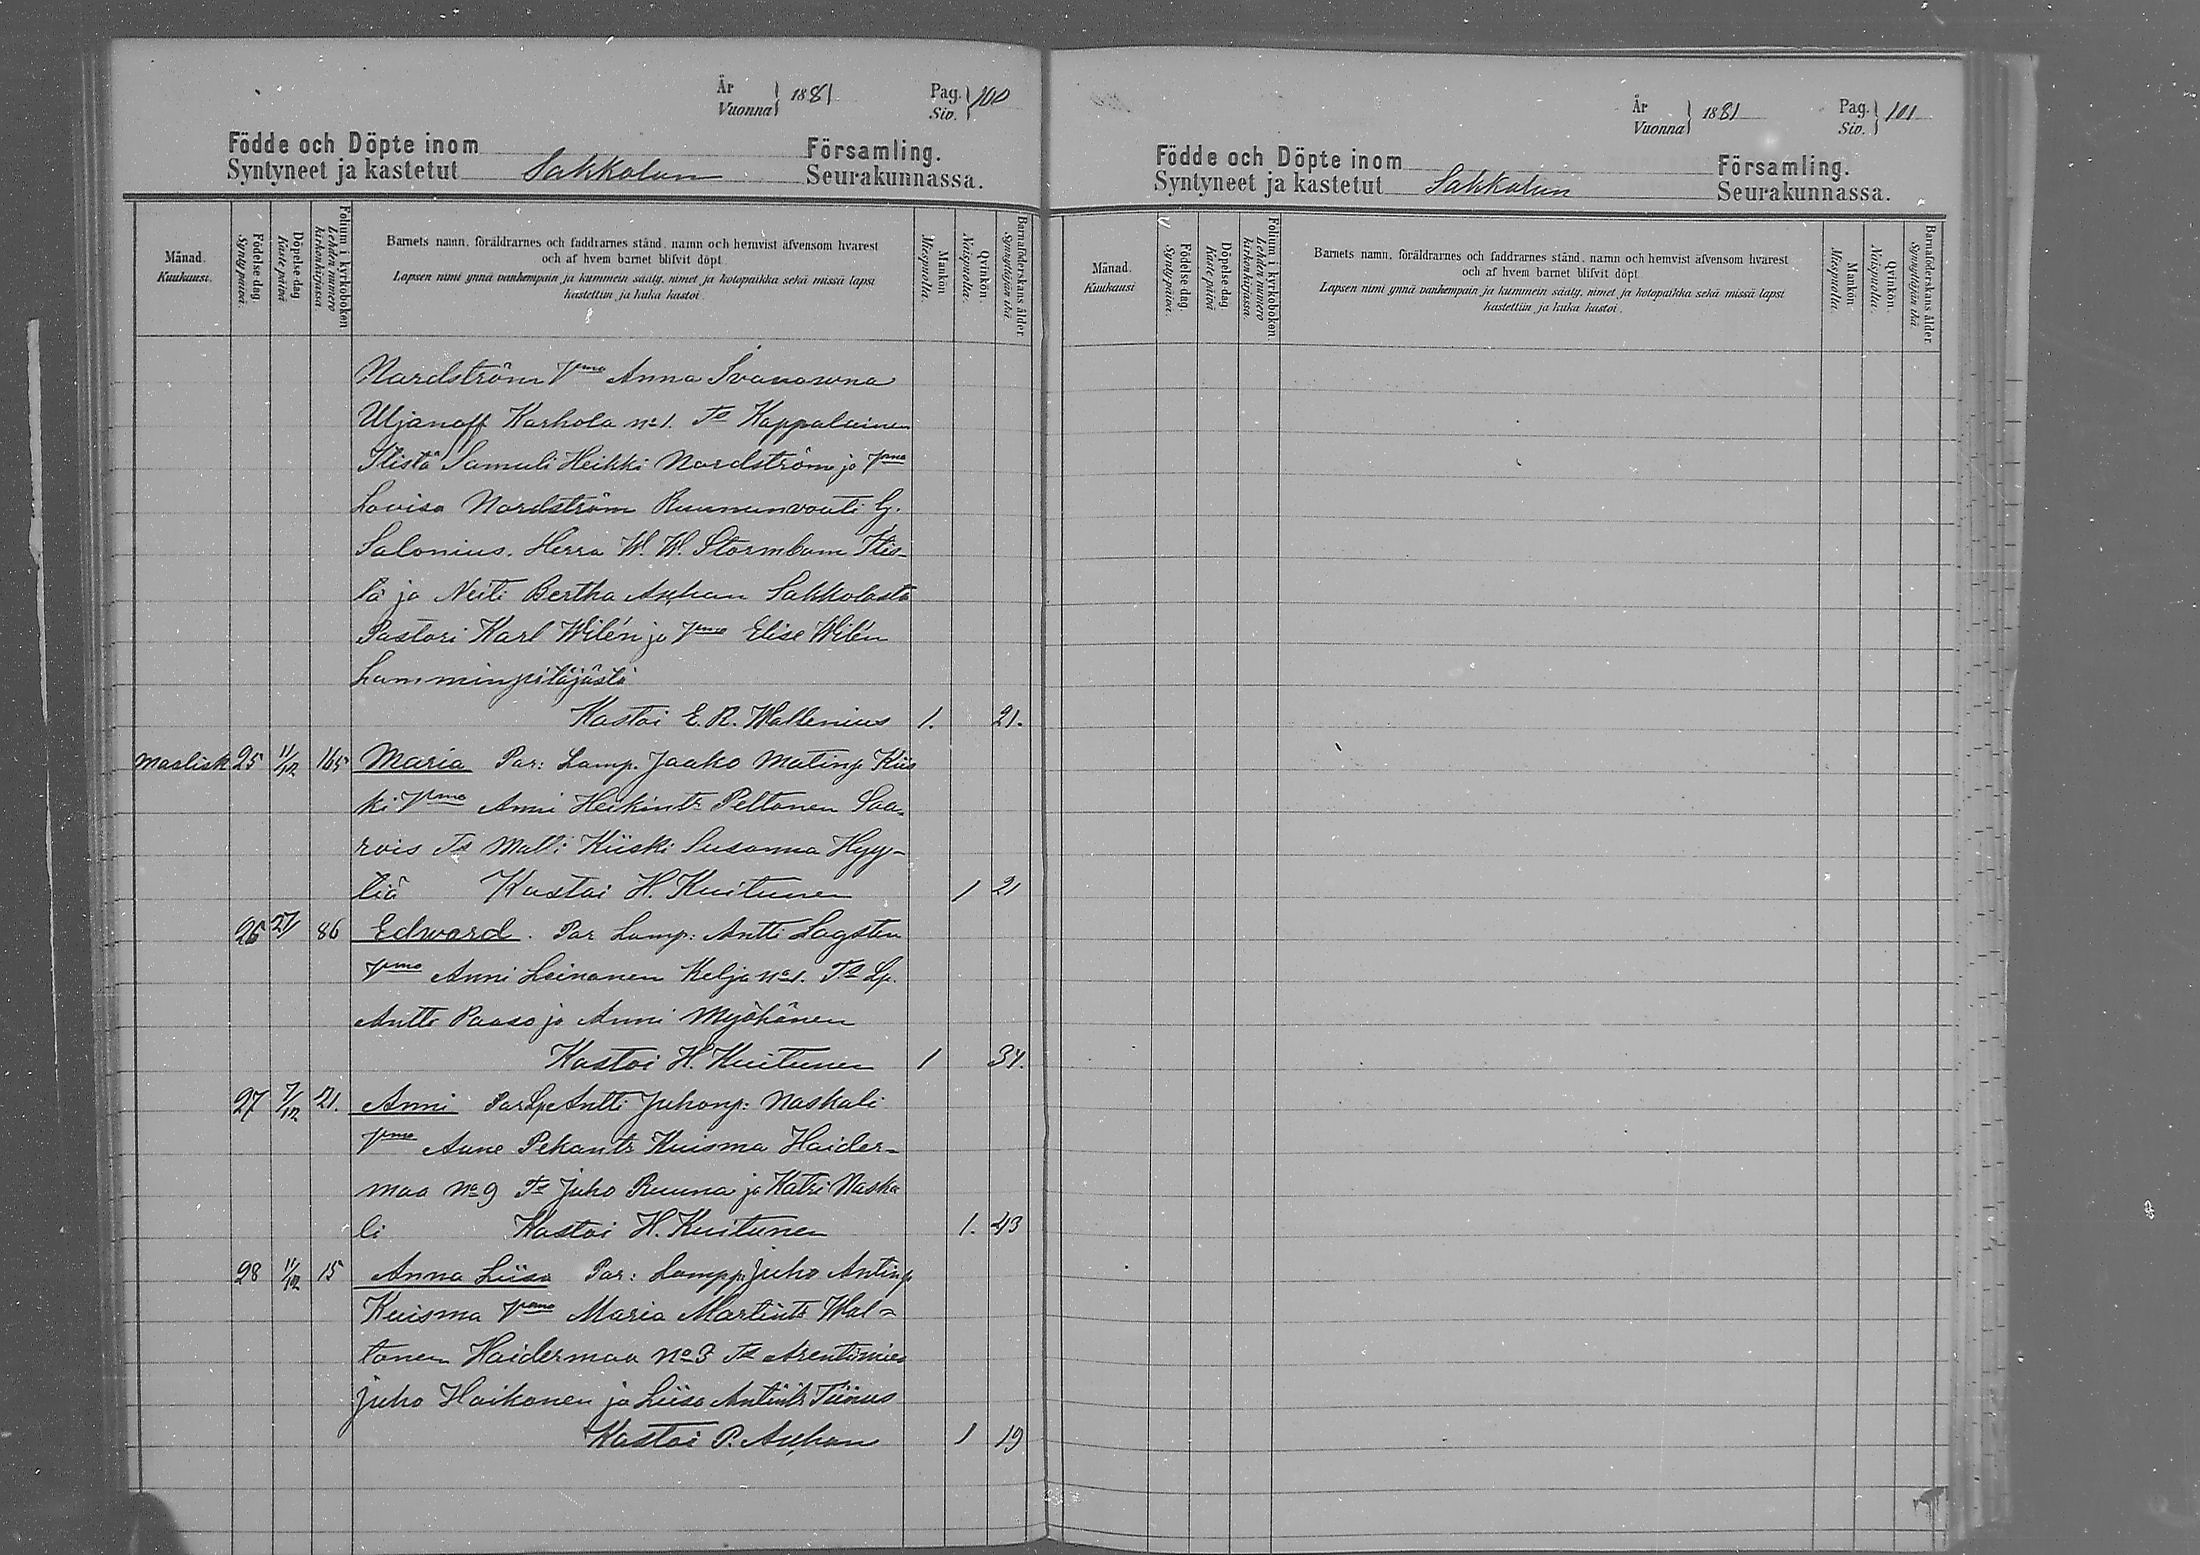 År
Vuonna } 1881 Pag.
Siv. } 100
Födde och Döpte inom Församling.
Syntyneet ja kastetut Sakkolan Seurakunnassa.
Månad.
Kuukausi.
Födelsedag.
Syntypäivä.
Döpelsedag
Kastepäivä
Folium i kyrkoboken
Lehden numero
kirkonkirjassa.
Barnets namn, föräldrarnes och faddrarnes stånd, namn och hemvist äfvensom hvarest
och af hvem barnet blifvit döpt.
Lapsen nimi ynnä vanhempain ja kummein sääty, nimet ja kotopaikka sekä missä lapsi
kastettiin ja kuka kastoi.
Mankön
Miespuolia.
Qvinkön
Naispuolia.
Barnaföderskans ålder.
Synnyttäjän ikä.
Nordström Vmo Anna Ivanowna
Uljanoff Karhola No 1. Ts Kappalainen
Itistä Samuli Heikki Nordström ja Vmo
Lovisa Nordström Ruununvouti G.
Salonius. Herra W. W. Stormbom Itis-
tä ja Neiti Bertha Axhan Sakkolasta
Pastori Karl Wilén ja Vmo Elise Wilén
Lamminpitäjästä
Kastoi E. R. Wallenius 1. 21.
Maalisk 25 11/12 165 Maria Par: Lamp. Jaako Matinp. Kiis
ki Vmo Anni Heikintr Peltonen Saa-
rois Ts Matti Kiiski Susanna Hyy-
tiä Kastoi H. Kuitunen 1 21
26 27/ 86 Edward. Par Lamp: Antti Lagsten
Vmo Anni Leinonen Kelja No 1. Ts Lp.
Antti Paaso ja Anni Myöhänen
Kastoi H. Kuitunen 1 34.
27 7/12 21. Anni Par Lp Antti Juhonp: Naskali
Vmo Anne Pekantr Kuisma Haider-
maa No 9 Ts Juho Ruuna ja Katri Naska
li Kastoi H. Kuitunen 1. 43
28 11/12 15 Anna Liisa Par: Lampp Juho Antinp
Kuisma Vmo Maria Martintr Wal-
tonen Haidermaa No 3 Ts Arentimies
Juho Haikonen ja Liisa Antintr Tiinus
Kastoi P. Axhan 1 19
År
Vuonna } 1881 Pag.
Siv. } 101
Födde och Döpte inom Församling.
Syntyneet ja kastetut Sakkolan Seurakunnassa.
Månad.
Kuukausi
Födelsedag.
Syntypäivä.
Döpelsedag
Kastepäivä
Folium i kyrkoboken.
Lehden numero
kirkonkirjassa.
Barnets namn, föräldrarnes och faddrarnes stånd, namn och hemvist äfvensom hvarest
och af hvem barnet blifvit döpt.
Lapsen nimi ynnä vanhempain ja kummein sääty, nimet ja kotopaikka sekä missä lapsi
kastettiin ja kuka kastoi.
Mankön
Miespuolia.
Qvinkön.
Naispuolia.
Barnaföderskans ålder.
Synnyttäjän ikä.